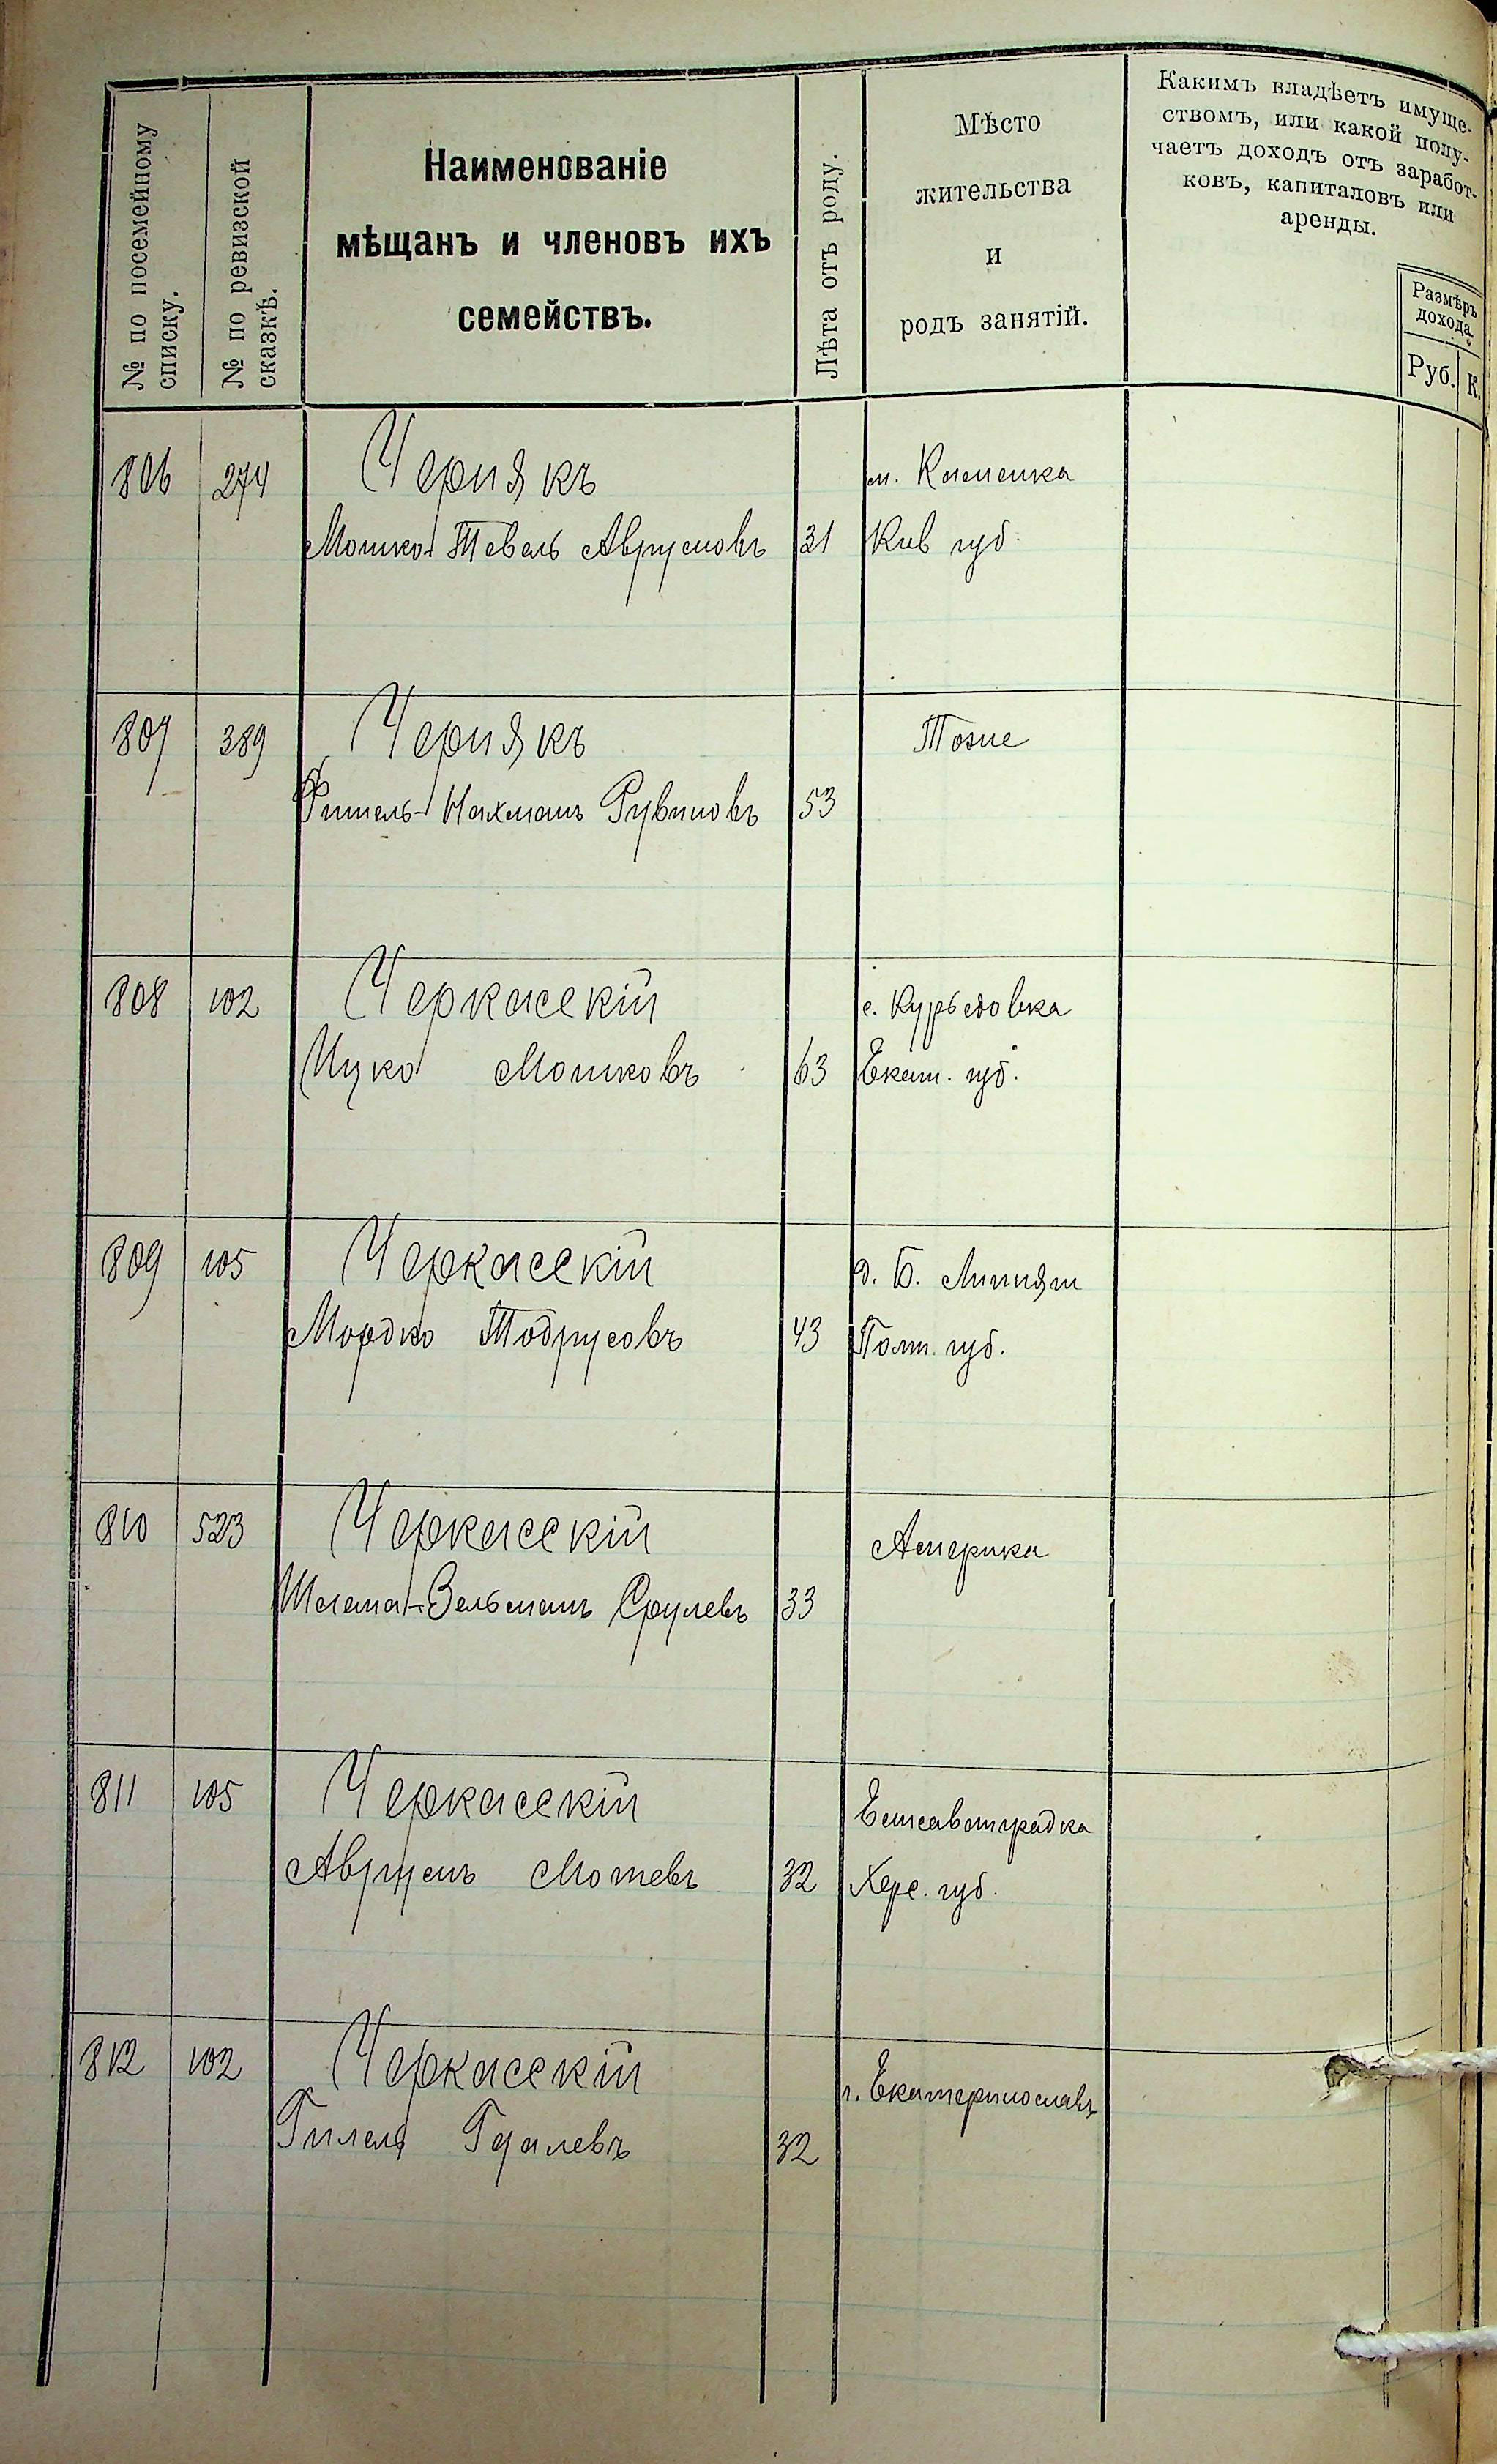 № по посемейному
списку.
№ по ревизской
сказкѣ.
Наименованіе
мѣщанъ и членовъ ихъ
семействъ.
Лѣта отъ роду.
Мѣсто
жительства
и
родъ занятій.
Какимъ владѣетъ имуще-
ствомъ, или какой полу-
чаетъ доходъ отъ заработ-
ковъ, капиталовъ или
аренды.
Размѣръ
дохода.
Руб. К.
806 274 Чернякъ м. Каменка
Мошко-Тевель Аврумовъ 31 Кив губ.
807 389 Чернякъ Тоже
Фишель-Нахманъ Рувиновъ 53
808 102 Черкасскій с.
Ицко Мошковъ 63 Екат. губ.
809 105 Черкасскій д. Б.
Мордко Тодрусовъ 43 Полт. губ.
810 523 Черкасскій Америка
Шлема-Зельманъ Срулевъ 33
811 105 Черкасскій Елисаветградка
Аврумъ Мотевъ 32 Хер. губ.
812 102 Черкасскій г. Екатеринославъ
Гилель Гдалевъ 32